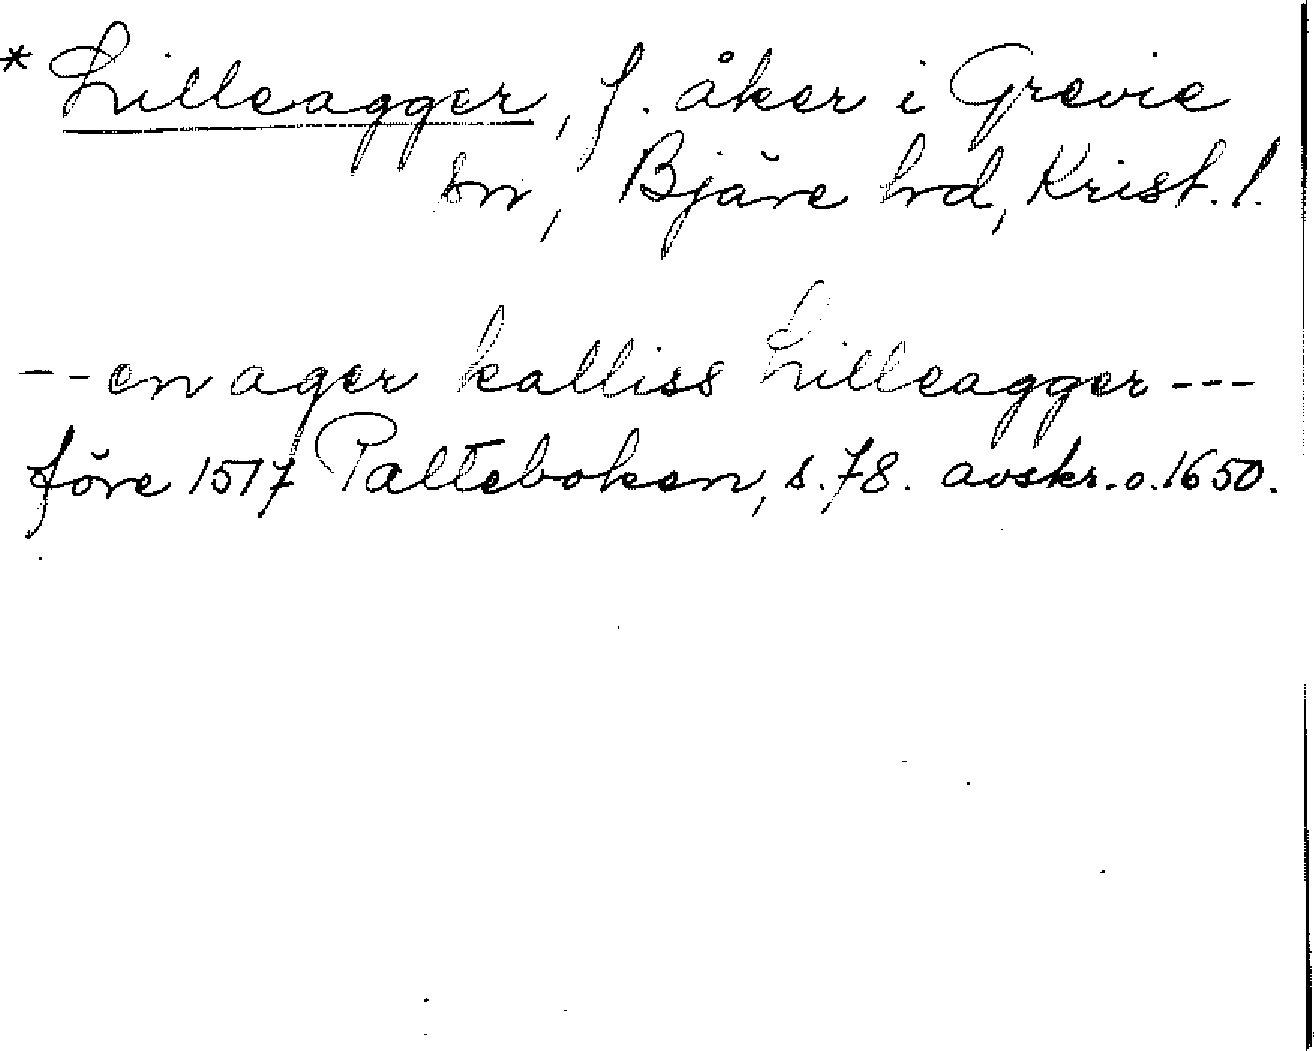 * Lilleagger, f. åker i Grevie
sn, Bjäre hd, Krist. l.
-- en ager kalliss Lilleagger ---
före 1517 Palteboken, s. 78. avskr. o. 1650.